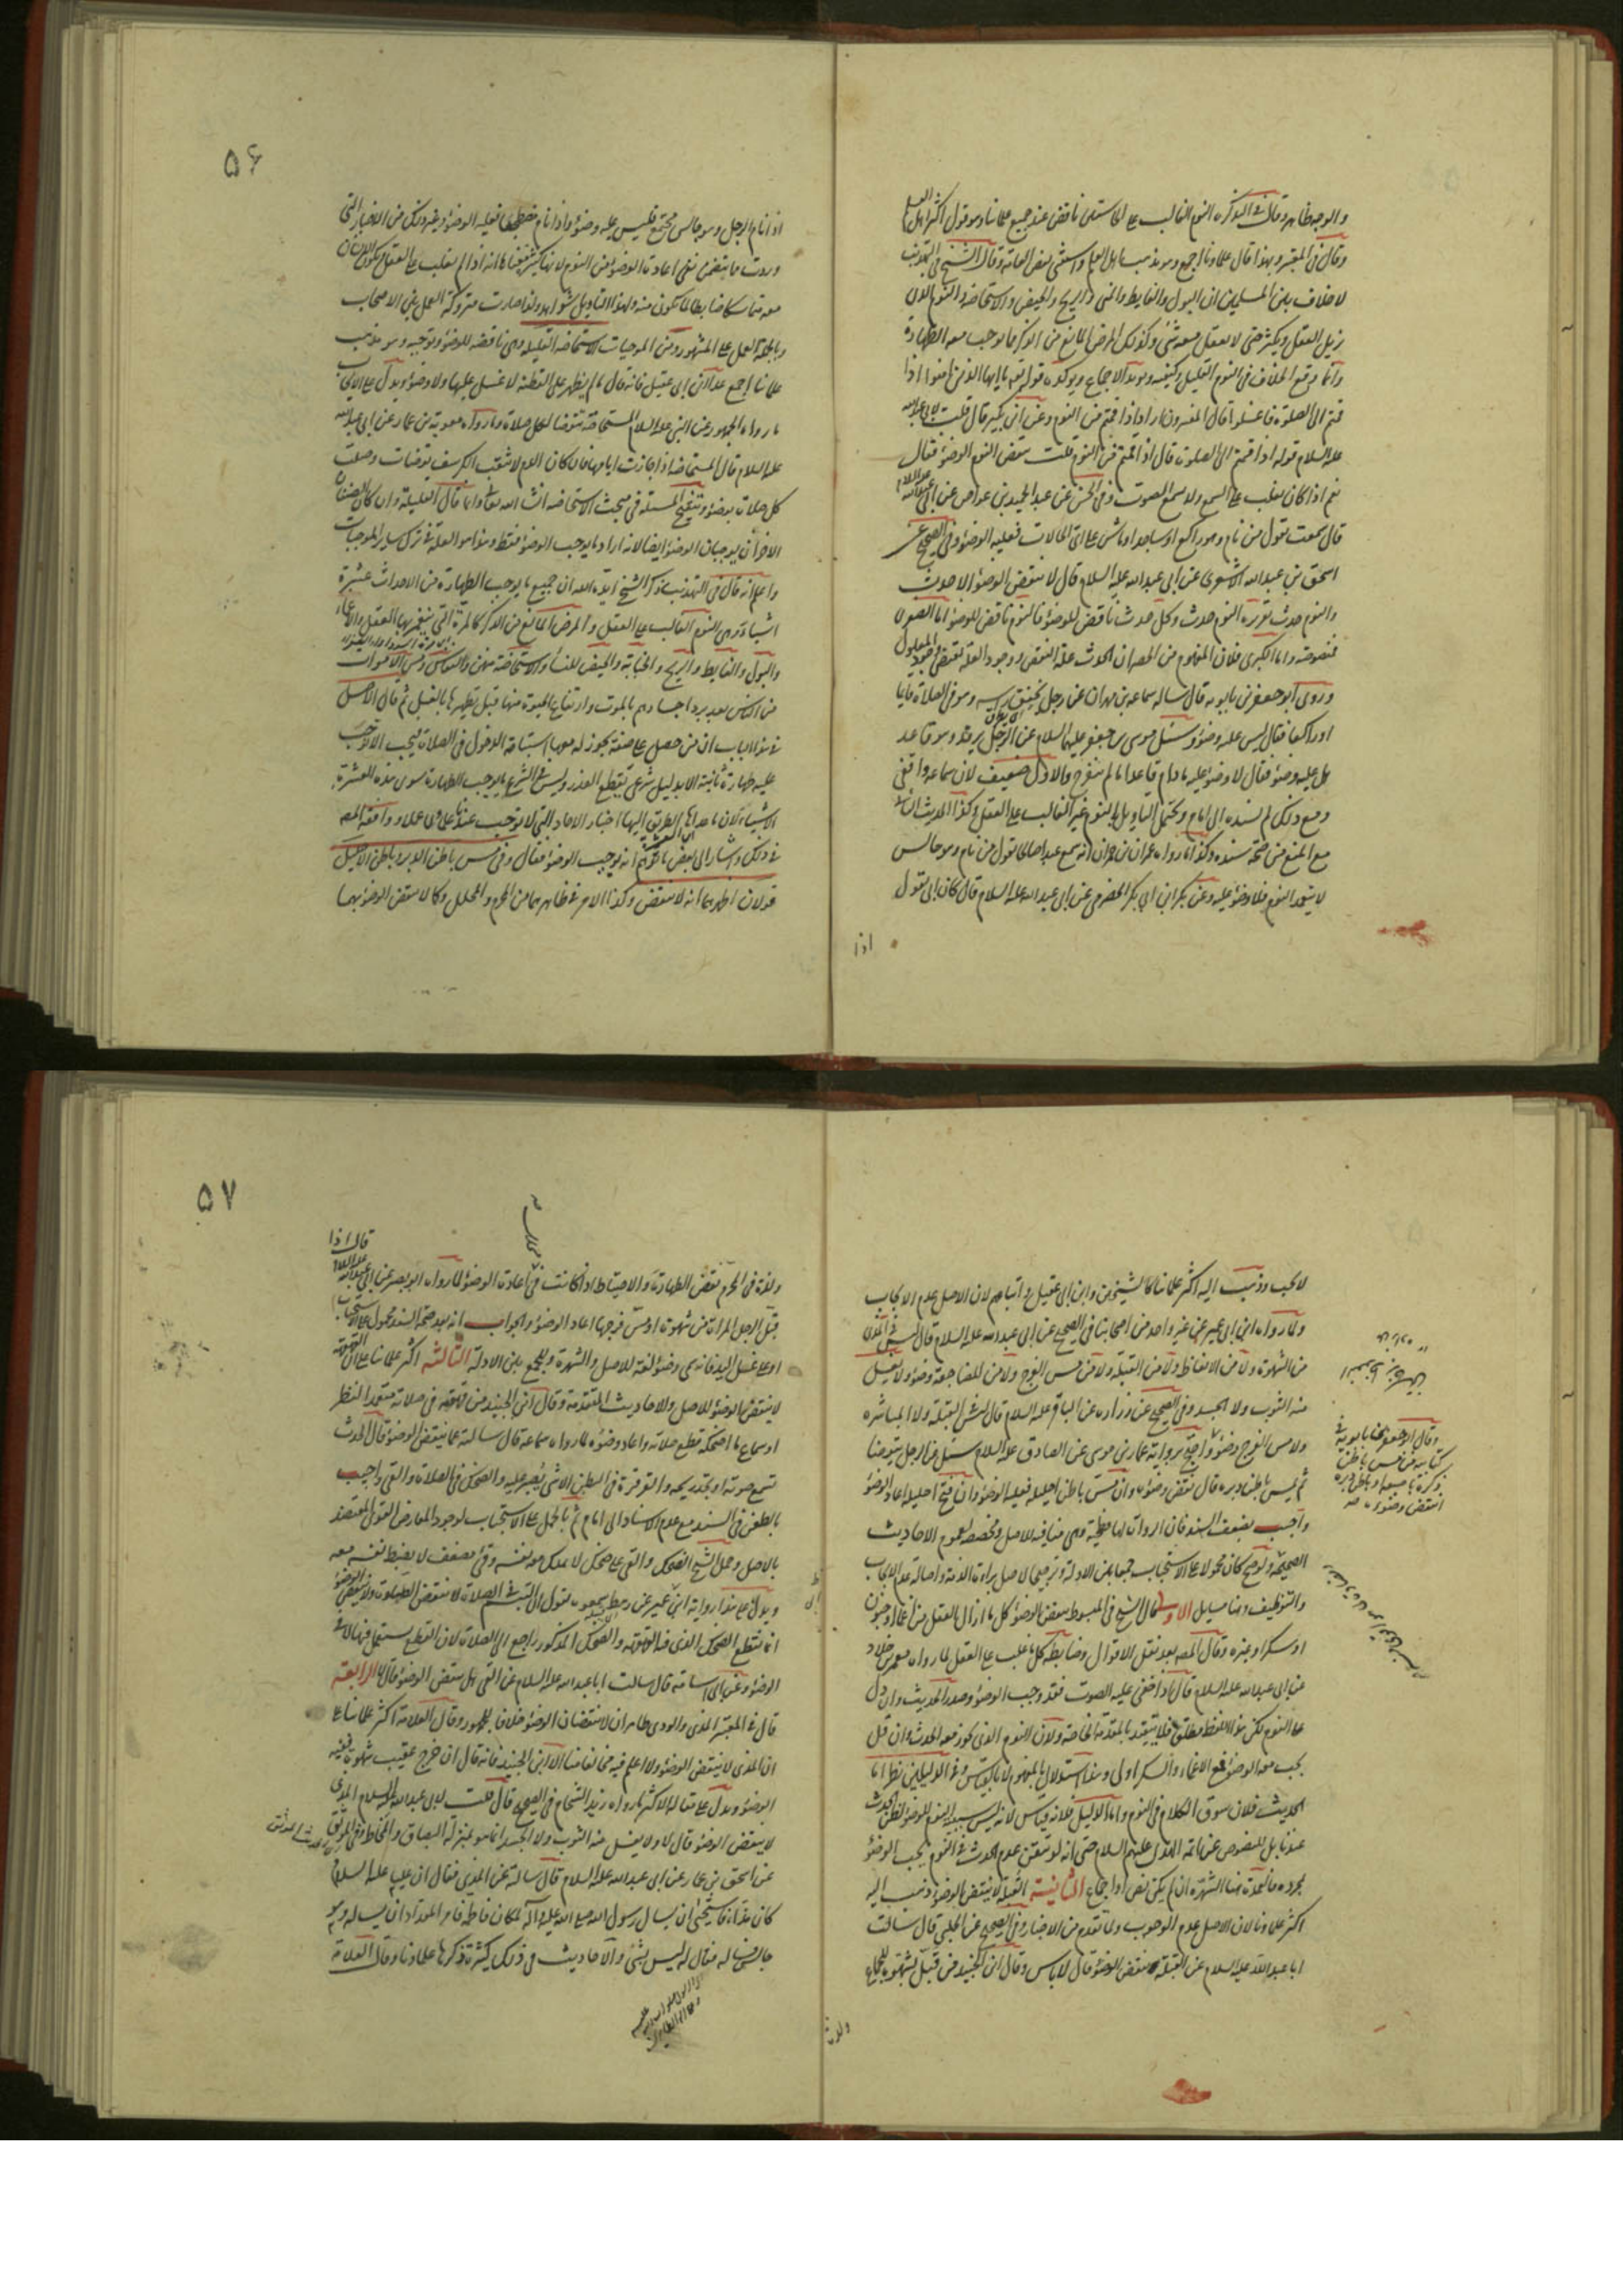 والوجه ظاهر وقال في التذكرة النوم الغالب على الحاستين ناقض عند جميع علمائنا وهو قول اكثر اهل العلم
وقال في المعتبر وبهذا قال علماؤنا اجمع وهو مذهب اهل العلم واستثنى بعض العامة وقال الشيخ في التهذيب
لا خلاف بين المسلمين ان البول والغايط والمني والريح والحيض والاستحاضة والنوم الذي
يزيل العقل ويكثر حتى لا يعقل معه شئ وكذلك المرض المانع من الذكر مما يوجب معه الطهارة
وانما وقع الخلاف في النوم القليل وكيفيته ويؤيد الاجماع ويؤكده قوله تعالى يا ايها الذين امنوا اذا
قمتم الى الصلوة فاغسلوا قال المفسرون اراد اذا قمتم من النوم وعن ابن بكير قال قلت لابي عبد الله
عليه السلام قوله اذا قمتم الى الصلوة قال اذا قمتم من النوم قلت ينقض النوم الوضوء فقال
نعم اذا كان يغلب على السمع ولا يسمع الصوت وفي الحسن عن عبد الحميد بن عواض عن ابي عبد الله عليه السلام
قال سمعته يقول من نام وهو راكع او ساجد او ماش على اي الحالات فعليه الوضوء وفي الصحيح عن
اسحق بن عبد الله الاشعري عن ابي عبد الله عليه السلام قال لا ينقض الوضوء الا حدث
والنوم حدث تقريره النوم حدث وكل حدث ناقض للوضوء فالنوم ناقض للوضوء اما الصغرى
فمنصوصة واما الكبرى فلان المفهوم من الحصر ان الحدث علة النقض ووجود العلة يقتضي وجود المعلول
وروى ابو جعفر بن بابويه قال ساله سماعة بن مهران عن رجل يخفق راسه وهو في الصلاة قايما
او راكعا فقال ليس عليه وضوء وسئل موسى بن جعفر عليهما السلام عن الرجل يرقد وهو قاعد
هل عليه وضوء فقال لا وضوء عليه ما دام قاعدا ما لم ينفرج والاول ضعيف لان سماعة واقفي
ومع ذلك لم يسنده الى امام ويحتمل التاويل بالنوم غير الغالب على العقل وكذا الحديث الثاني
مع المنع من صحة سنده وكذا ما رواه عمران بن حمران انه سمع عبدا صالحا يقول من نام وهو جالس
لا يتعمد النوم فلا وضوء عليه وعن بكر ابن ابي بكر الحضرمي عن ابي عبد الله عليه السلام قال كان ابي يقول
اذا
۵۶
اذا نام الرجل وهو جالس مجتمع فليس عليه وضوء واذا نام مضطجعا فعليه الوضوء وغير ذلك من الاخبار التي
وردت مما يتضمن نفي اعادة الوضوء من النوم لانها كثيرة فمعناها انه اذا لم يغلب على العقل ويكون الانسان
معه متماسكا ضابطا لما يكون منه ولهذا التاويل شواهد ولذا صارت متروكة العمل بين الاصحاب
وبالجملة العمل على المشهور ومن الموجبات الاستحاضة القليلة وهي ناقضة للوضوء وتوجبه وهو مذهب
علمائنا اجمع عدا ابن ابي عقيل فانه قال ما لم يظهر على القطنة لا غسل عليها ولا وضوء ويدل على الايجاب
ما رواه الجمهور عن النبي عليه السلام المستحاضة تتوضأ لكل صلاة وما رواه معوية بن عمار عن ابي عبد الله
عليه السلام قال المستحاضة اذا جازت ايامها فان كان الدم لا يثقب الكرسف توضأت وصلت
كل صلاة بوضوء وتنقيح المسئلة في مبحث الاستحاضة انشاء الله تعالى وانما قال القليلة وان كان الصنفان
الاخران يوجبان الوضوء ايضا لانه اراد ما يوجب الوضوء فقط وهذا هو العلة في ترك ساير الموجبات
واعلم انه قال في التهذيب ذكر الشيخ ايده الله ان جميع ما يوجب الطهارة من الاحداث عشرة
اشياء وهي النوم الغالب على العقل والمرض المانع من الذكر كالمرة التي ينغمر بها العقل والاغماء
والبول والغايط والريح والجنابة والحيض للنساء والاستحاضة منهن والنفاس ومس الاموات
من الناس بعد برد اجسادهم بالموت وارتفاع الحيوة منها قبل تطهيرها بالغسل ثم قال الاصل
في هذا الباب ان من حصل على صفة يجوز له معها استباحة الدخول في الصلاة لم يجب الا وجب
عليه طهارة ثانية الا بدليل شرعي يقطع العذر وليس في الشرع ما يوجب الطهارة سوى هذه العشرة
الاشياء لان ما عداها الطريق اليها اخبار الاحاد التي لا توجب عندنا علما ولا عملا ووافقه المصنف
في ذلك واشار الى بعض ما توهم انه يوجب الوضوء فقال وفي مس باطن الدبر وباطن الاحليل
قولان اظهرهما انه لا ينقض وكذا الامر في ظاهرهما من المحرم والمحلل وكما لا ينقض الوضوء بهما
لا يجب وذهب اليه اكثر علمائنا كالشيخين وابن ابي عقيل واتباعهم لان الاصل عدم الايجاب
ولما رواه ابن ابي عمير عن غير واحد من اصحابنا في الصحيح عن ابي عبد الله عليه السلام قال ليس في المذي
من الشهوة ولا من الانعاظ ولا من القبلة ولا من مس الفرج ولا من المضاجعة وضوء ولا يغسل
منه الثوب ولا الجسد وفي الصحيح عن زرارة عن الباقر عليه السلام قال ليس في القبلة ولا المباشرة
ولا مس الفرج وضوء واحتج برواية عمار بن موسى عن الصادق عليه السلام سئل عن الرجل يتوضأ
ثم يمس باطن دبره قال نقض وضوءه وان مس باطن احليله فعليه الوضوء وان فتح احليله اعاد الوضوء
واجيب بضعف السند فان الرواة لها فطحية وهي منافية للاصل ومخصصة لعموم الاحاديث
الصحيحة ولو صح كان محمولا على الاستحباب جمعا بين الادلة وترجيحا لاصل براءة الذمة واصالة عدم الايجاب
والتوظيف وهنا مسايل الاولى قال الشيخ في المبسوط ينقض الوضوء كل ما ازال العقل من اغماء وجنون
او سكر او غيره وقال المصنف بعد نقل الاقوال وضابطه كل ما غلب على العقل لما رواه معمر بن خلاد
عن ابي عبد الله عليه السلام قال اذا خفى عليه الصوت فقد وجب الوضوء وصدر الحديث وان دل
على النوم لكن هذا اللفظ مطلق فلا يتقيد بالمقدمة الخاصة ولان النوم الذي يجوز معه الحدث وان قل
يجب معه الوضوء فمع الاغماء والسكر اولى وهذا استدلال بالمفهوم لا بالقياس وفي الدليلين نظر اما
الحديث فلان سوق الكلام في النوم واما الدليل فلانه قياس لانه ليس سببية النوم للوضوء لظن الحدث
عندنا بل للنصوص عن ائمة الهدى عليهم السلام حتى انه لو تيقن عدم الحدث في النوم يجب الوضوء
بمجرده فالعمدة هنا الشهرة ان لم يكن نص او اجماع الثانية القبلة لا ينقض الوضوء وذهب اليه
اكثر علمائنا لان الاصل عدم الوجوب ولما تقدم من الاخبار وفي الصحيح عن الحلبي قال سالت
ابا عبد الله عليه السلام عن القبلة تنقض الوضوء قال لا باس وقال ابن الجنيد من قبل بشهوة للجماع
وقال ابو جعفر بن بابويه في
كتابه من مس باطن
ذكره باصبعه او باطن دبره
انتقض وضوءه
ولذة
۵۷
ولذة في المحرم نقض الطهارة والاحتياط اذا كانت في اعادة الوضوء لما رواه ابو بصير عن ابي عبد الله عليه السلام قال اذا
قبل الرجل المراة من شهوة او مس فرجها اعاد الوضوء والجواب انه بعد صحة السند محمول على الاستحباب
او على غسل اليد فانه يسمى وضوء لغة للاصل والشهرة وللجمع بين الادلة الثالثة اكثر علمائنا على ان القهقهة
لا ينقض الوضوء للاصل والاحاديث المتقدمة وقال ابن الجنيد من قهقه في صلاته متعمدا لنظر
او سماع ما اضحكه قطع صلاته واعاد وضوءه لما رواه سماعة قال سالته عما ينقض الوضوء قال الحدث
تسمع صوته او تجد ريحه والقرقرة في البطن الا شئ تصبر عليه والضحك في الصلاة والقئ واجيب
بالطعن في السند مع عدم الاسناد الى امام ثم بالحمل على الاستحباب لوجود المعارض القوي المعتضد
بالاصل وحمل الشيخ الضحك والقئ على ضحك لا يملك معه نفسه وقئ مضعف لا يضبط نفسه معه
ويدل على هذا رواية ابن ابي عمير عن رهط سمعوه يقول ان التبسم في الصلاة لا ينقض الصلوة ولا ينقض الوضوء
انما يقطع الضحك الذي فيه القهقهة والضحك المذكور راجع الى الصلاة لان القطع يستعمل فيها لا في
الوضوء وعن ابي اسامة قال سالت ابا عبد الله عليه السلام عن القئ هل ينقض الوضوء قال لا الرابعة
قال في المعتبر المذي والودي طاهران لا ينقضان الوضوء خلافا للجمهور وقال العلامة اكثر علمائنا على
ان المذي لا ينقض الوضوء ولا اعلم فيه مخالفا منا الا ابن الجنيد فانه قال ان خرج عقيب شهوة ففيه
الوضوء ويدل على مقالة الاكثر ما رواه زيد الشحام في الصحيح قال قلت لابي عبد الله عليه السلام المذي
لا ينقض الوضوء قال لا ولا يغسل منه الثوب ولا الجسد انما هو بمنزلة البصاق والمخاط وفي الموثق
عن اسحق بن عمار عن ابي عبد الله عليه السلام قال سالته عن المذي فقال ان عليا عليه السلام
كان مذاء فاستحيى ان يسال رسول الله صلى الله عليه وآله لمكان فاطمة فامر المقداد ان يساله وهو
جالس فساله فقال له ليس بشئ والاحاديث في ذلك كثيرة ذكرها علماؤنا وقال العلامة